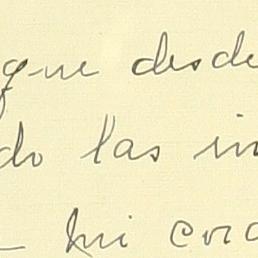 que desde
do las in
mi cora